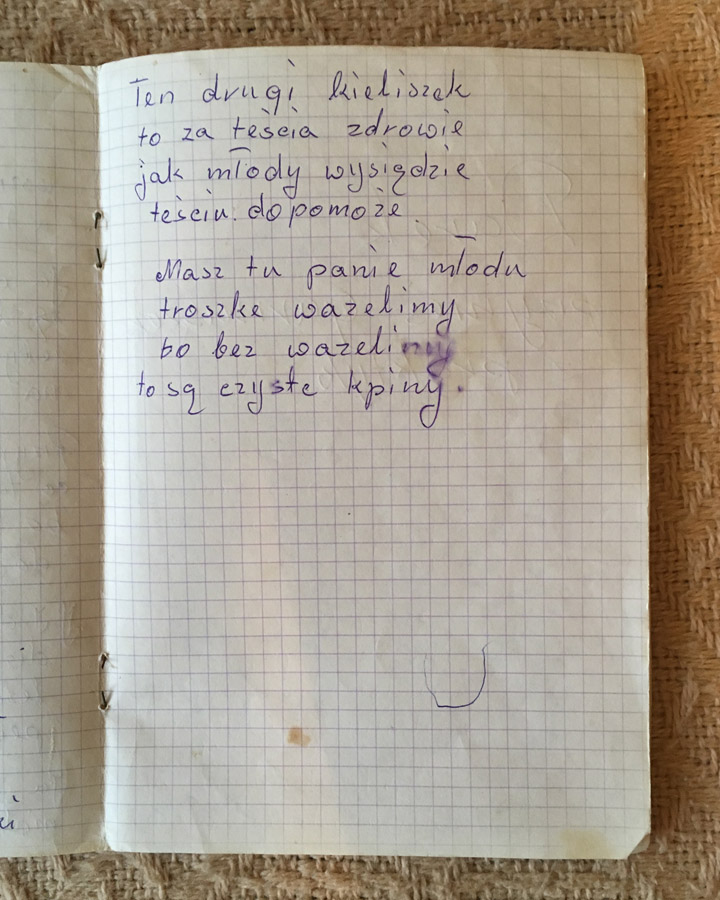 Ten drugi kieliszek
to za teścia zdrowie
jak młody wysiądzie
teściu. dopomoże.
Masz tu panie młodu
troszke wazelimy
bo bez wazeliny
to są czyste kpiny.